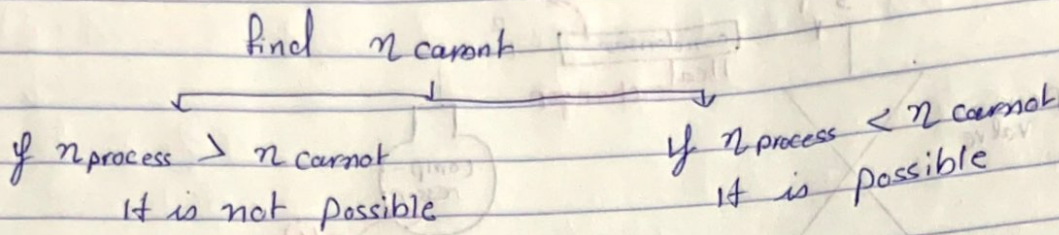 find n carnot
if n process > n carnot
it is not possible
if n process < n carnot
it is possible